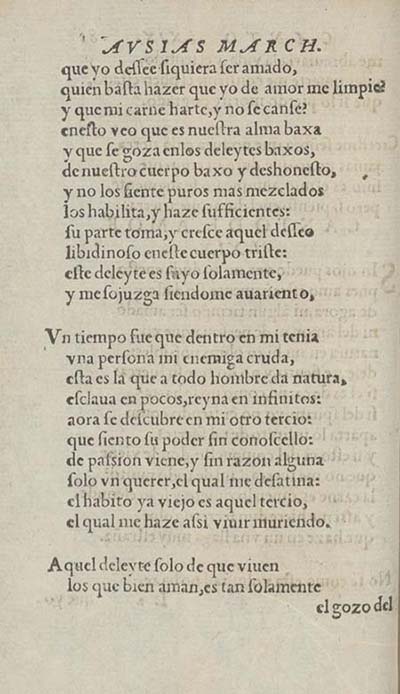 AVSIAS MARCH.
que yo dessee siquiera ser amado,
quien basta hazer que yo de amor me limpie?
y que mi carne harte, y no se canse?
enesto veo que es nuestra alma baxa
y que se goza enlos deleytes baxos,
de nuestro cuerpo baxo y deshonesto,
y no los siente puros mas mezclados
los habilita, y haze sufficientes:
su parte toma, y cresce aquel desseo
libidinoso eneste cuerpo triste:
este deleyte es suyo solamente,
y me sojuzga siendome auariento,
Vn tiempo fue que dentro en mi tenia
vna persona mi enemiga cruda,
esta es la que a todo hombre da natura,
esclaua en pocos, reyna en infinitos:
aora se descubre en mi otro tercio:
que siento su poder sin conoscello:
de passion viene, y sin razon alguna
solo vn querer, el qual me desatina:
el habito ya viejo es aquel tercio,
el qual me haze assi viuir muriendo.
Aquel deleyte solo de que viuen
los que bien aman, es tan solamente
el gozo del